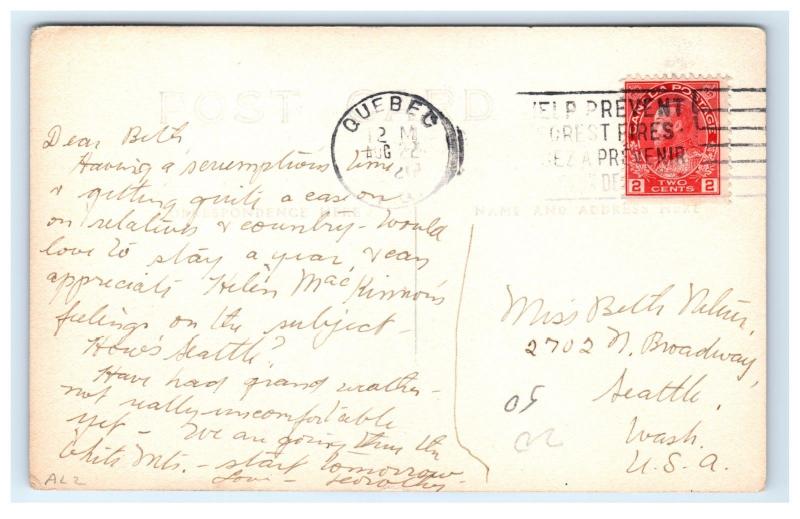 POST CARD
QUEBEC
12 M
AUG 22
HELP PREVENT
FOREST FIRES
AIDEZ A PREVENIR
CANADA POSTAGE
2 TWO CENTS 2
CORRESPONDENCE HERE
NAME AND ADDRESS HERE
Dear Beth
Having a scrumptious time
& getting quite a case on
on relatives & country - Would
love to stay a year, & can
appreciate Helen MacKinnon's
feelings on the subject -
How's Seattle?
Have had grand weather -
not really uncomfortable
yet - We are going thru the
White Mts. - start tomorrow
Love -
AL2
Miss Beth
2702 N. Broadway,
Seattle,
Wash.
U.S.A.
50